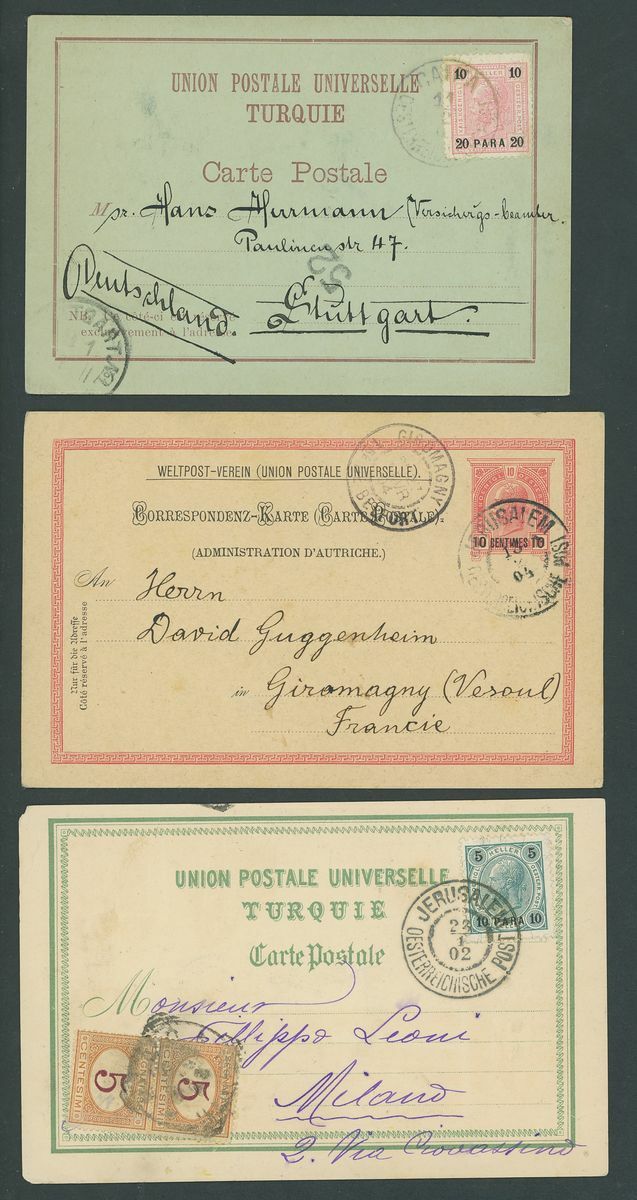 UNION POSTALE UNIVERSELLE
TURQUIE
Carte Postale
10 10
20 PARA 20
M
pr. Hans Herrmann
Paulinenstr 47.
Deutschland
Stuttgart.
52
NB. Ce côté-ci est réservé
exclusivement à l'adresse
WELTPOST-VEREIN (UNION POSTALE UNIVERSELLE).
CORRESPONDENZ-KARTE (CARTE POSTALE).
(ADMINISTRATION D'AUTRICHE.)
GIROMAGNY
10
10 CENTIMES 10
JERUSALEM
04
An Herrn
David Guggenheim
in Giromagny (Vesoul)
Francie
Nur für die Adresse
Côté réservé à l'adresse
UNION POSTALE UNIVERSELLE
TURQUIE
Carte Postale
5 HELLER 5
10 PARA 10
JERUSALEM
23
02
OESTERREICHISCHE POST
Monsieur
Fillippo Leoni
Milano
2. Via
5
CENTESIMI
5
CENTESIMI